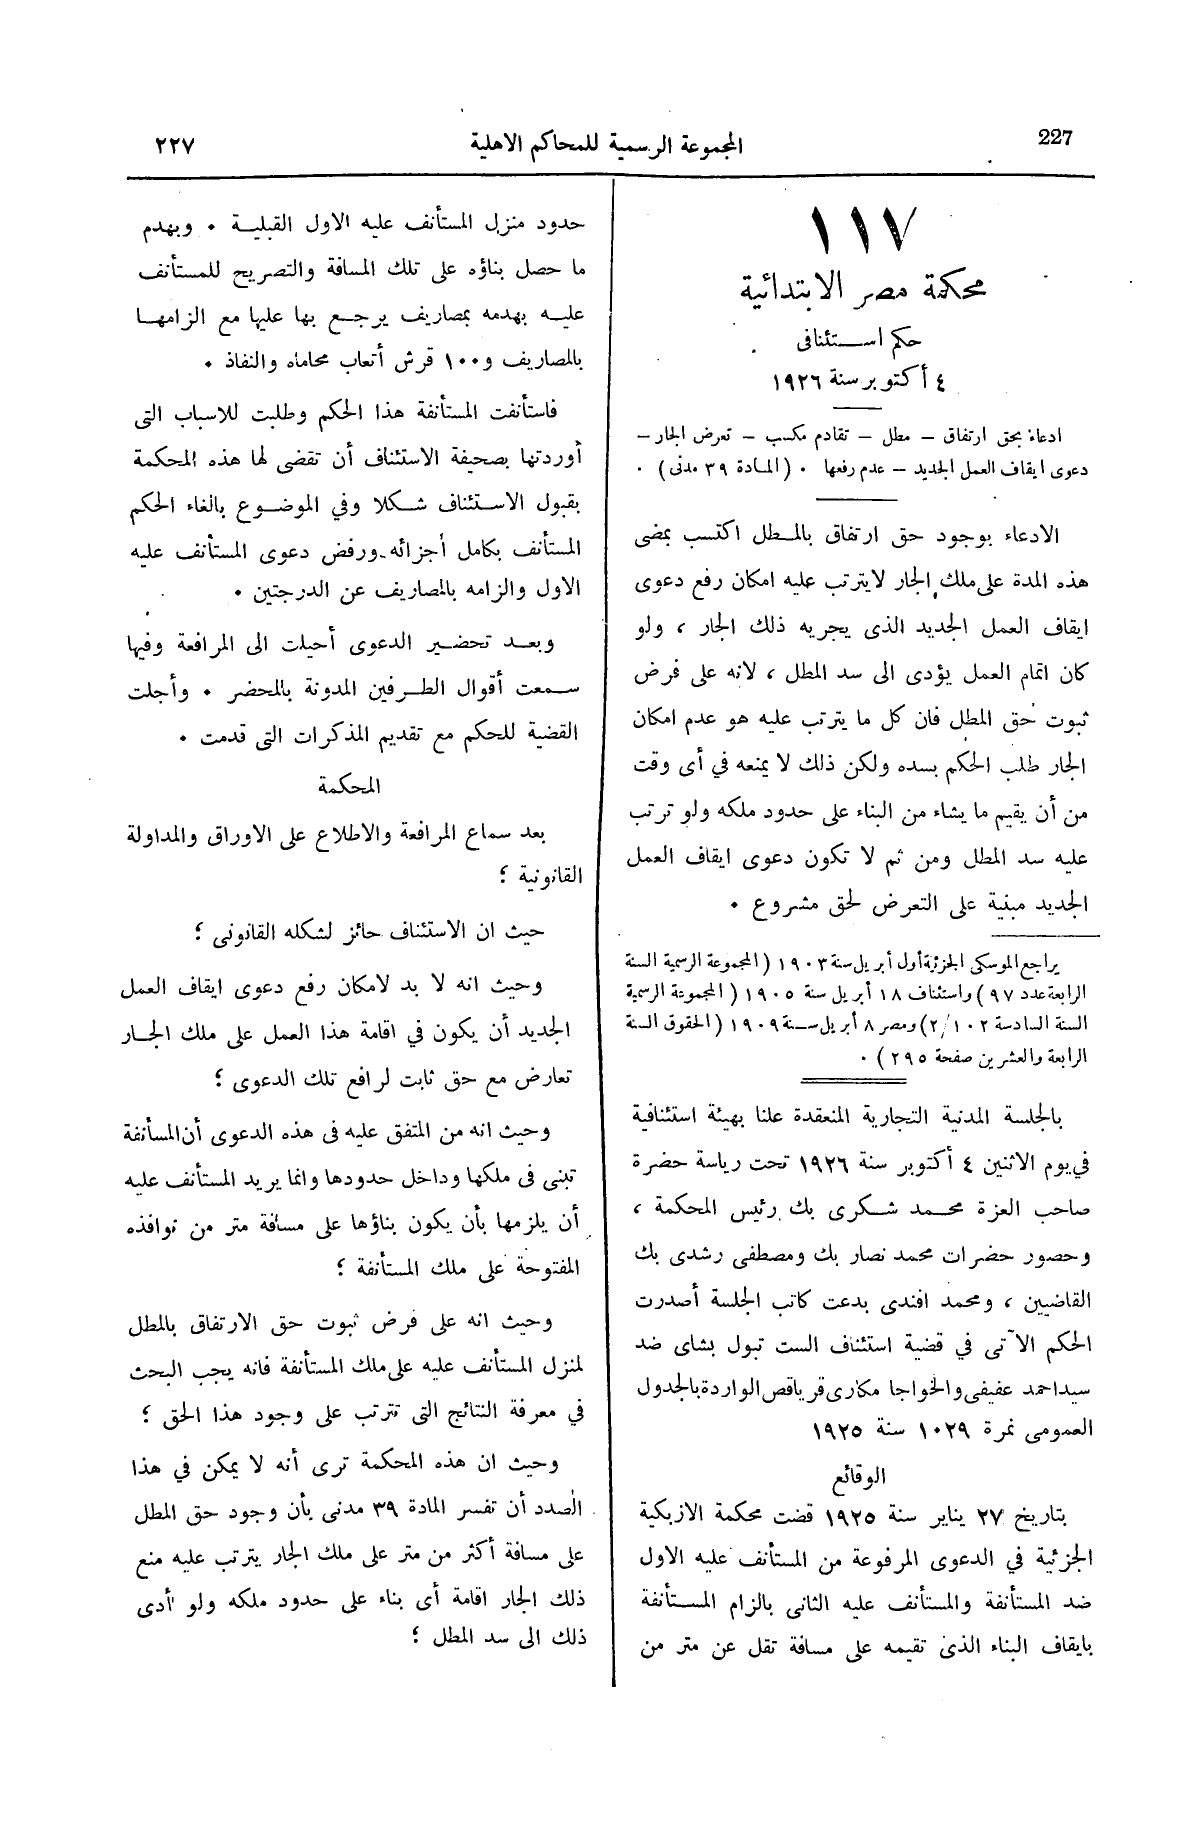 227
المجموعة الرسمية للمحاكم الاهلية
٢٢٧
١١٧
محكمة مصر الابتدائية
حكم استئنافى
٤ أكتوبر سنة ١٩٢٦
ادعاء بحق ارتفاق — مطل — تقادم مكسب — تعرض الجار —
دعوى ايقاف العمل الجديد — عدم رفعها . (المادة ٣٩ مدنى) .
الادعاء بوجود حق ارتفاق بالمطل اكتسب بمضى
هذه المدة على ملك الجار لايترتب عليه امكان رفع دعوى
ايقاف العمل الجديد الذى يجريه ذلك الجار ، ولو
كان اتمام العمل يؤدى الى سد المطل ، لانه على فرض
ثبوت حق المطل فان كل ما يترتب عليه هو عدم امكان
الجار طلب الحكم بسده ولكن ذلك لا يمنعه في أى وقت
من أن يقيم ما يشاء من البناء على حدود ملكه ولو ترتب
عليه سد المطل ومن ثم لا تكون دعوى ايقاف العمل
الجديد مبنية على التعرض لحق مشروع .
يراجع الموسكى الجزئية أول أبريل سنة ١٩٠٣ (المجموعة الرسمية السنة
الرابعة عدد ٩٧) واستئناف ١٨ أبريل سنة ١٩٠٥ (المجموعة الرسمية
السنة السادسة ٢/١٠٢) ومصر ٨ أبريل سنة ١٩٠٩ (الحقوق السنة
الرابعة والعشرين صفحة ٢٩٥) .
بالجلسة المدنية التجارية المنعقدة علنا بهيئة استئنافية
في يوم الاثنين ٤ أكتوبر سنة ١٩٢٦ تحت رياسة حضرة
صاحب العزة محمد شكرى بك رئيس المحكمة ،
وحضور حضرات محمد نصار بك ومصطفى رشدى بك
القاضيين ، ومحمد افندى بدعت كاتب الجلسة أصدرت
الحكم الآتى في قضية استئناف الست تبول بشاى ضد
سيد احمد عفيفى والخواجا مكارى قرياقص الواردة بالجدول
العمومى نمرة ١٠٢٩ سنة ١٩٢٥
الوقائع
بتاريخ ٢٧ يناير سنة ١٩٢٥ قضت محكمة الازبكية
الجزئية في الدعوى المرفوعة من المستأنف عليه الاول
ضد المستأنفة والمستأنف عليه الثانى بالزام المستأنفة
بايقاف البناء الذى تقيمه على مسافة تقل عن متر من
حدود منزل المستأنف عليه الاول القبلية . وبهدم
ما حصل بناؤه على تلك المسافة والتصريح للمستأنف
عليه بهدمه بمصاريف يرجع بها عليها مع الزامها
بالمصاريف و١٠٠ قرش أتعاب محاماه والنفاذ .
فاستأنفت المستأنفة هذا الحكم وطلبت للاسباب التى
أوردتها بصحيفة الاستئناف أن تقضى لها هذه المحكمة
بقبول الاستئناف شكلا وفي الموضوع بالغاء الحكم
المستأنف بكامل أجزائه ورفض دعوى المستأنف عليه
الاول والزامه بالمصاريف عن الدرجتين .
وبعد تحضير الدعوى أحيلت الى المرافعة وفيها
سمعت أقوال الطرفين المدونة بالمحضر . وأجلت
القضية للحكم مع تقديم المذكرات التى قدمت .
المحكمة
بعد سماع المرافعة والاطلاع على الاوراق والمداولة
القانونية ؛
حيث ان الاستئناف حائز لشكله القانونى ؛
وحيث انه لا بد لامكان رفع دعوى ايقاف العمل
الجديد أن يكون في اقامة هذا العمل على ملك الجار
تعارض مع حق ثابت لرافع تلك الدعوى ؛
وحيث انه من المتفق عليه فى هذه الدعوى أن المسأنفة
تبنى فى ملكها وداخل حدودها وانما يريد المستأنف عليه
أن يلزمها بأن يكون بناؤها على مسافة متر من نوافذه
المفتوحة على ملك المستأنفة ؛
وحيث انه على فرض ثبوت حق الارتفاق بالمطل
لمنزل المستأنف عليه على ملك المستأنفة فانه يجب البحث
في معرفة النتائج التى تترتب على وجود هذا الحق ؛
وحيث ان هذه المحكمة ترى أنه لا يمكن في هذا
الصدد أن تفسر المادة ٣٩ مدنى بأن وجود حق المطل
على مسافة أكثر من متر على ملك الجار يترتب عليه منع
ذلك الجار اقامة أى بناء على حدود ملكه ولو أدى
ذلك الى سد المطل ؛